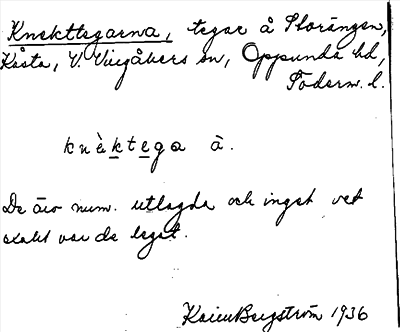 Knekttegarna, tegar å Storängen,
Kåsta, V. Vingåkers sn, Oppunda hd,
Söderm. l.
knèktega à.
De äro num. utlagda och inget vet
exakt var de legat.
Karin Bergström 1936